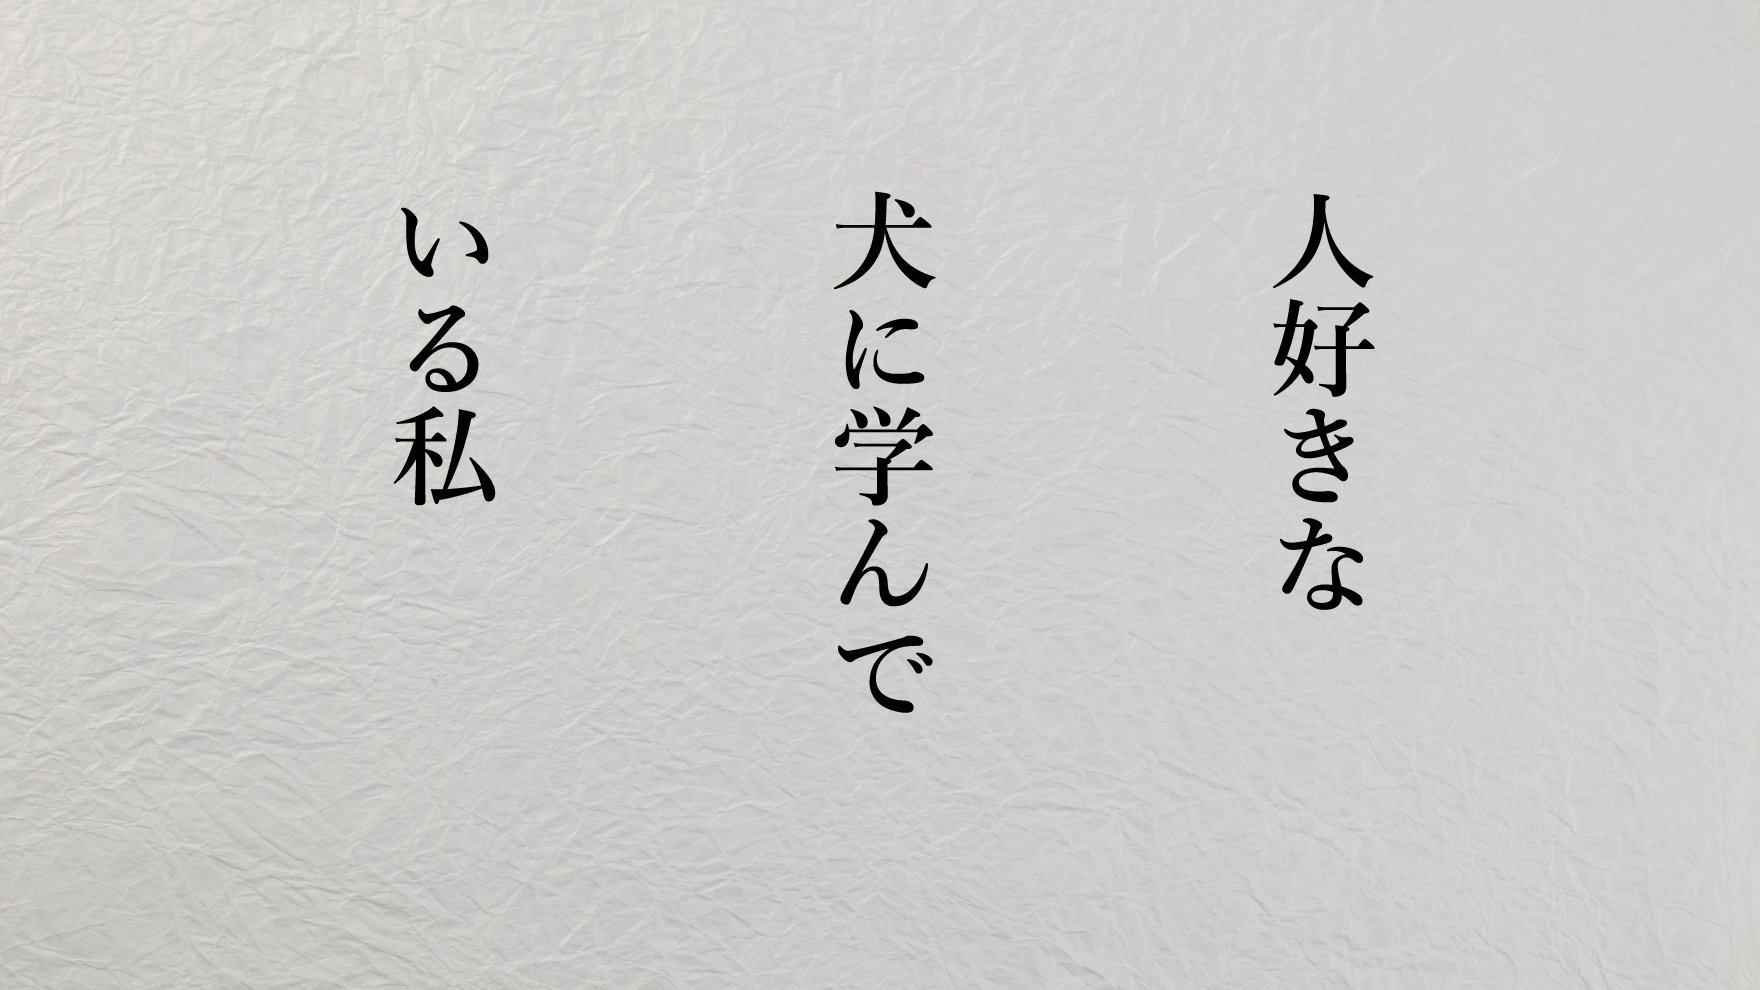 人好きな
犬に学んで
いる私